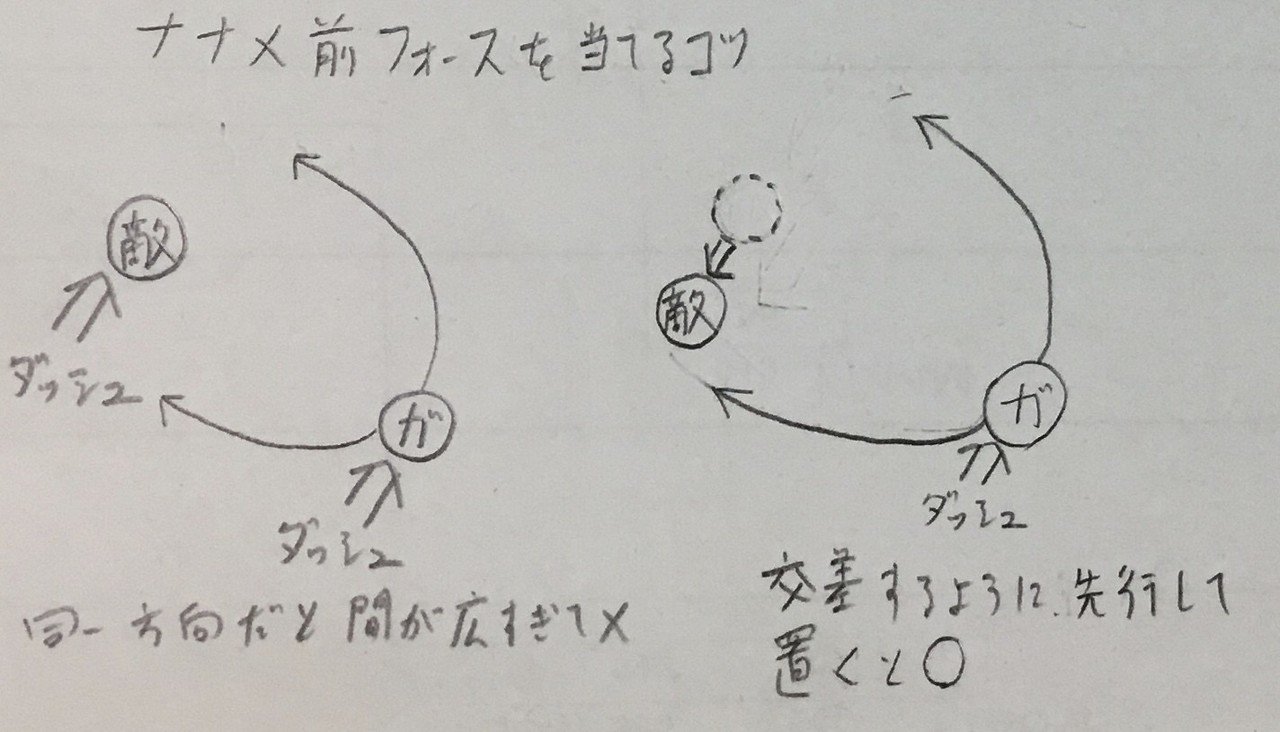 ナナメ前フォースを当てるコツ
敵
ダッシュ
ガ
ダッシュ
同一方向だと間が広すぎて×
敵
ガ
ダッシュ
交差するように、先行して
置くと○